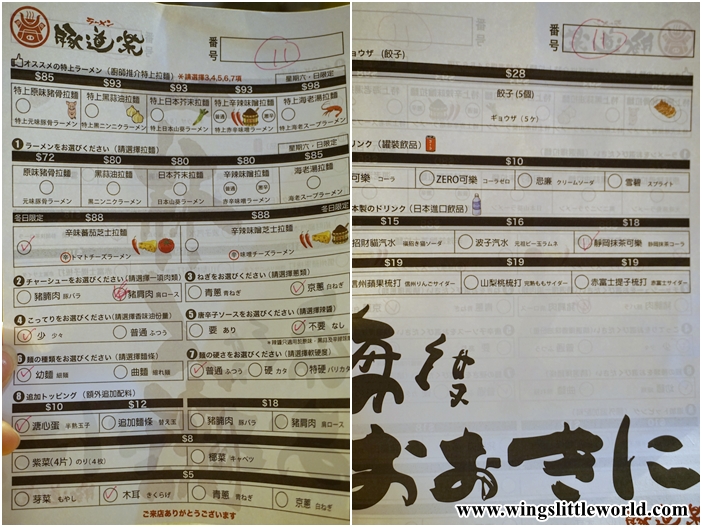 ラーメン
豚道楽
番号
11
オススメの特上ラーメン (廚師推介特上拉麵) ※請選擇3,4,5,6,7項
星期六・日限定
$85 $93 $93 $93 $98
特上原味豬骨拉麵 特上黑蒜油拉麵 特上日本芥末拉麵 特上辛辣味噌拉麵 特上海老湯拉麵
普通 激辛
特上元味豚骨ラーメン 特上黒ニンニクラーメン 特上日本山葵ラーメン 特上赤辛味噌ラーメン 特上海老スープラーメン
1 ラーメンをお選びください (請選擇拉麵) 星期六・日限定
$72 $80 $80 $80 $85
原味豬骨拉麵 黑蒜油拉麵 日本芥末拉麵 辛辣味噌拉麵 海老湯拉麵
普通 激辛
元味豚骨ラーメン 黒ニンニクラーメン 日本山葵ラーメン 赤辛味噌ラーメン 海老スープラーメン
冬日限定 $88 冬日限定 $88
辛味蕃茄芝士拉麵 辛辣味噌芝士拉麵
辛トマトチーズラーメン 辛味噌チーズラーメン
2 チャーシューをお選びください (請選擇一項肉類)
豬腩肉 豚バラ 豬肩肉 肩ロース
3 ねぎをお選びください (請選擇蔥類)
青蔥 青ねぎ 京蔥 白ねぎ
4 こってりをお選びください (請選擇香味油份量)
少 少々 普通 ふつう
5 唐辛子ソースをお選びください (請選擇辣醬)
要 あり 不要 なし
6 麵の種類をお選びください (請選擇麵條)
幼麵 細麺 曲麵 縮れ麺
7 麵の硬さをお選びください (請選擇軟硬度)
普通 ふつう 硬 カタ 特硬 バリカタ
8 追加トッピング (額外追加配料)
$10 $12 $18
溏心蛋 半熟玉子 追加麵條 替え玉 豬腩肉 豚バラ 豬肩肉 肩ロース
$8
紫菜(4片) のり(4枚) 椰菜 キャベツ
$5
芽菜 もやし 木耳 きくらげ 青蔥 青ねぎ 京蔥 白ねぎ
ご来店ありがとうございます
番号
11
ョウザ (餃子)
$28
餃子 (5個)
ギョウザ (5ケ)
リンク (罐裝飲品)
$10
可樂 コーラ ZERO可樂 コーラゼロ 忌廉 クリームソーダ 雪碧 スプライト
本製のドリンク (日本進口飲品)
$15 $16 $18
招財貓汽水 福招き猫ソーダ 波子汽水 元祖ビー玉ラムネ 靜岡抹茶可樂 靜岡抹茶コーラ
$19 $19 $19
信州蘋果梳打 信州りんごサイダー 山梨桃梳打 完熟ももサイダー 赤富士提子梳打 赤富士サイダー
おおきに
www.wingslittleworld.com